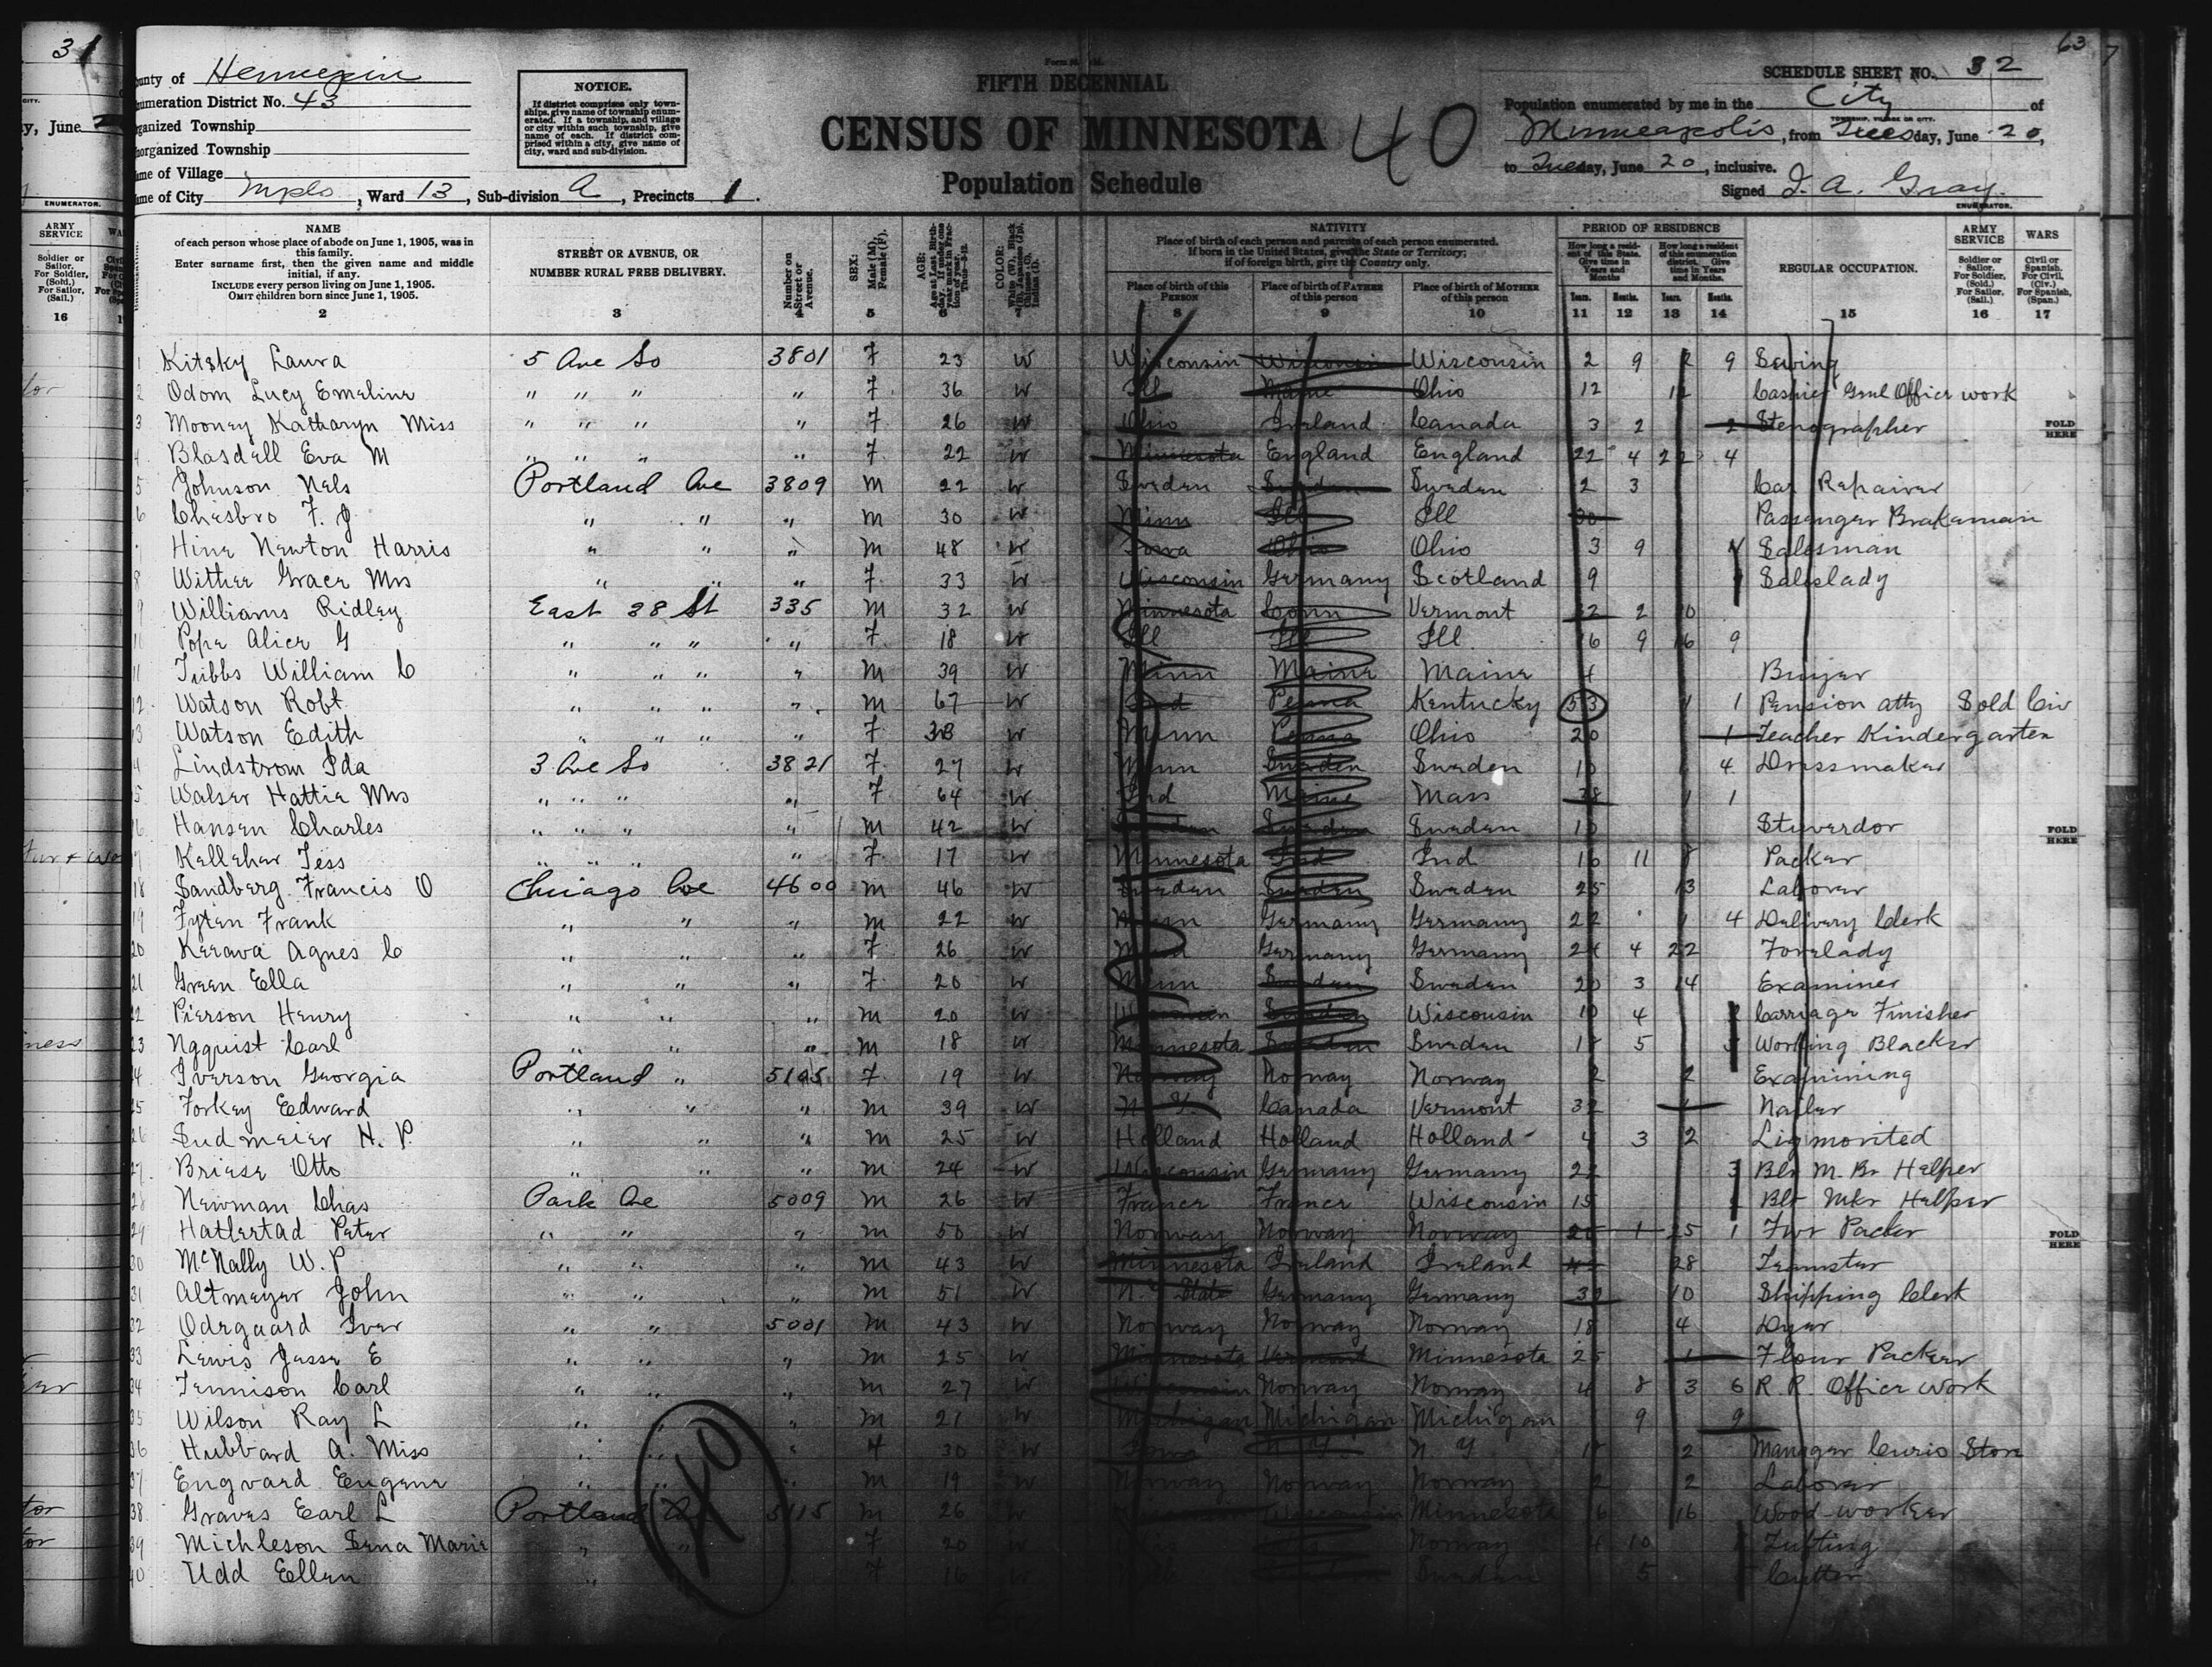 31
63
County of Hennepin
Enumeration District No. 43
Organized Township
Unorganized Township
Name of Village
Name of City Mpls, Ward 13, Sub-division A, Precincts 1.
NOTICE.
If district comprises only town-
ships, give name of township enum-
erated. If a township, and village
or city within such township, give
name of each. If district com-
prised within a city, give name of
city, ward and sub-division.
FIFTH DECENNIAL
CENSUS OF MINNESOTA 40
Population Schedule
SCHEDULE SHEET NO. 32
Population enumerated by me in the City of
TOWNSHIP, VILLAGE OR CITY.
Minneapolis, from Tuesday, June 20,
to Tuesday, June 20, inclusive.
Signed J. A. Gray.
ENUMERATOR.
NAME
of each person whose place of abode on June 1, 1905, was in
this family.
Enter surname first, then the given name and middle
initial, if any.
INCLUDE every person living on June 1, 1905.
OMIT children born since June 1, 1905.
2
STREET OR AVENUE, OR
NUMBER RURAL FREE DELIVERY.
3
Number on Street or Avenue.
SEX: Male (M), Female (F).
5
NATIVITY
Place of birth of each person and parents of each person enumerated.
If born in the United States, give the State or Territory;
if of foreign birth, give the Country only.
Place of birth of this PERSON
8
Place of birth of FATHER of this person
9
Place of birth of MOTHER of this person
10
PERIOD OF RESIDENCE
How long a resident of this State. Give time in Years and Months
How long a resident of this enumeration district. Give time in Years and Months.
Years. Months. Years. Months.
11 12 13 14
REGULAR OCCUPATION.
15
ARMY SERVICE
Soldier or Sailor. For Soldier, (Sold.) For Sailor, (Sail.)
16
WARS
Civil or Spanish. For Civil, (Civ.) For Spanish, (Span.)
17
1 Kitsky Laura 5 Ave So 3801 F 23 W Wisconsin Wisconsin Wisconsin 2 9 2 9 Sewing
2 Odom Lucy Emeline " " " " F 36 W Ill Maine Ohio 12 12 Cashier Genl Office work
3 Mooney Katharyn Miss " " " " F 26 W Ohio Ireland Canada 3 2 2 Stenographer
4 Blasdell Eva M " " " " F 22 W Minnesota England England 22 4 22 4
5 Johnson Nels Portland Ave 3809 M 22 W Sweden Sweden Sweden 2 3 Car Repairer
6 Chesbro F. J " " " M 30 W Minn Ill Ill 30 Passenger Brakeman
Hine Newton Harris " " " M 48 W Iowa Ohio Ohio 3 9 Salesman
8 Wither Grace Mrs " " " F 33 W Wisconsin Germany Scotland 9 Saleslady
9 Williams Ridley East 38 St 335 M 32 W Minnesota Conn Vermont 32 2 10
Pope Alice G " " " " F 18 W Ill Ill Ill 16 9 16 9
11 Tubbs William C " " " " M 39 W Minn Maine Maine 4 Buyer
12 Watson Robt. " " " " M 67 W Ind Penna Kentucky 53 1 1 Pension atty Sold Civ
13 Watson Edith " " " " F 38 W Minn Penna Ohio 20 1 Teacher Kindergarten
14 Lindstrom Ida 3 Ave So 3821 F 27 W Minn Sweden Sweden 4 Dressmaker
15 Walser Hattie Mrs " " " " F 64 W Ind Maine Mass 38 1 1
16 Hansen Charles " " " " M 42 W Sweden Sweden Sweden Steverdor
17 Kelleher Tess " " " " F 17 W Minnesota Ind Ind 16 11 8 Packer
18 Sandberg Francis O Chicago Ave 4600 M 46 W Sweden Sweden Sweden 25 13 Laborer
19 Fyten Frank " " " M 22 W Minn Germany Germany 22 1 4 Delivery Clerk
20 Kerava Agnes C " " " F 26 W Germany Germany 24 4 22 Forelady
21 Green Ella " " " F 20 W Minn Sweden Sweden 20 3 14 Examiner
22 Pierson Henry " " " M 20 W Wisconsin Sweden Wisconsin 10 4 Carriage Finisher
23 Nqquist Carl " " " M 18 W Minnesota Sweden Sweden 18 5 5 Working Blacker
24 Iverson Georgia Portland " 5105 F 19 W Norway Norway Norway 2 2 Examining
25 Forkey Edward " " " M 39 W N. Y. Canada Vermont 32 1 Nailer
26 Sudmeier H. P. " " " M 25 W Holland Holland Holland 4 3 2
27 Briese Otto " " " M 24 W Wisconsin Germany Germany 22 3 Blr M. Br Helper
28 Newman Chas Park Ave 5009 M 26 W France France Wisconsin 15 Blr Mkr Helper
29 Hatlestad Peter " " " M 50 W Norway Norway Norway 25 1 25 1 Fwr Packer
30 McNally W. P " " " M 43 W Minnesota Ireland Ireland 28 Teamster
31 Altmeyer John " " " M 51 W N. Y State Germany Germany 10 Shipping Clerk
32 Odegaard Iver " " 5001 M 43 W Norway Norway Norway 18 4 Dyer
33 Lewis Jesse E " " " M 25 W Minnesota Vermont Minnesota 25 1 Flour Packer
34 Tennison Carl " " " M 27 W Wisconsin Norway Norway 4 8 3 6 R. R. Office work
35 Wilson Ray L " " " M 21 W Michigan Michigan Michigan 9 9
36 Hubbard A. Miss " " " F 30 W Iowa N. Y. N. Y 2 Manager Curio Store
37 Engvard Eugene " " " M 19 W Norway Norway Norway 2 2 Laborer
38 Graves Earl L Portland Ave 5115 M 26 W Wisconsin Minnesota 16 16 Wood-worker
39 Michleson Sena Marie " " F 20 W Norway 4 10 Tufting
40 Udd Ellen " " F 16 W Sweden 5 Cutter
40
FOLD HERE
FOLD HERE
FOLD HERE